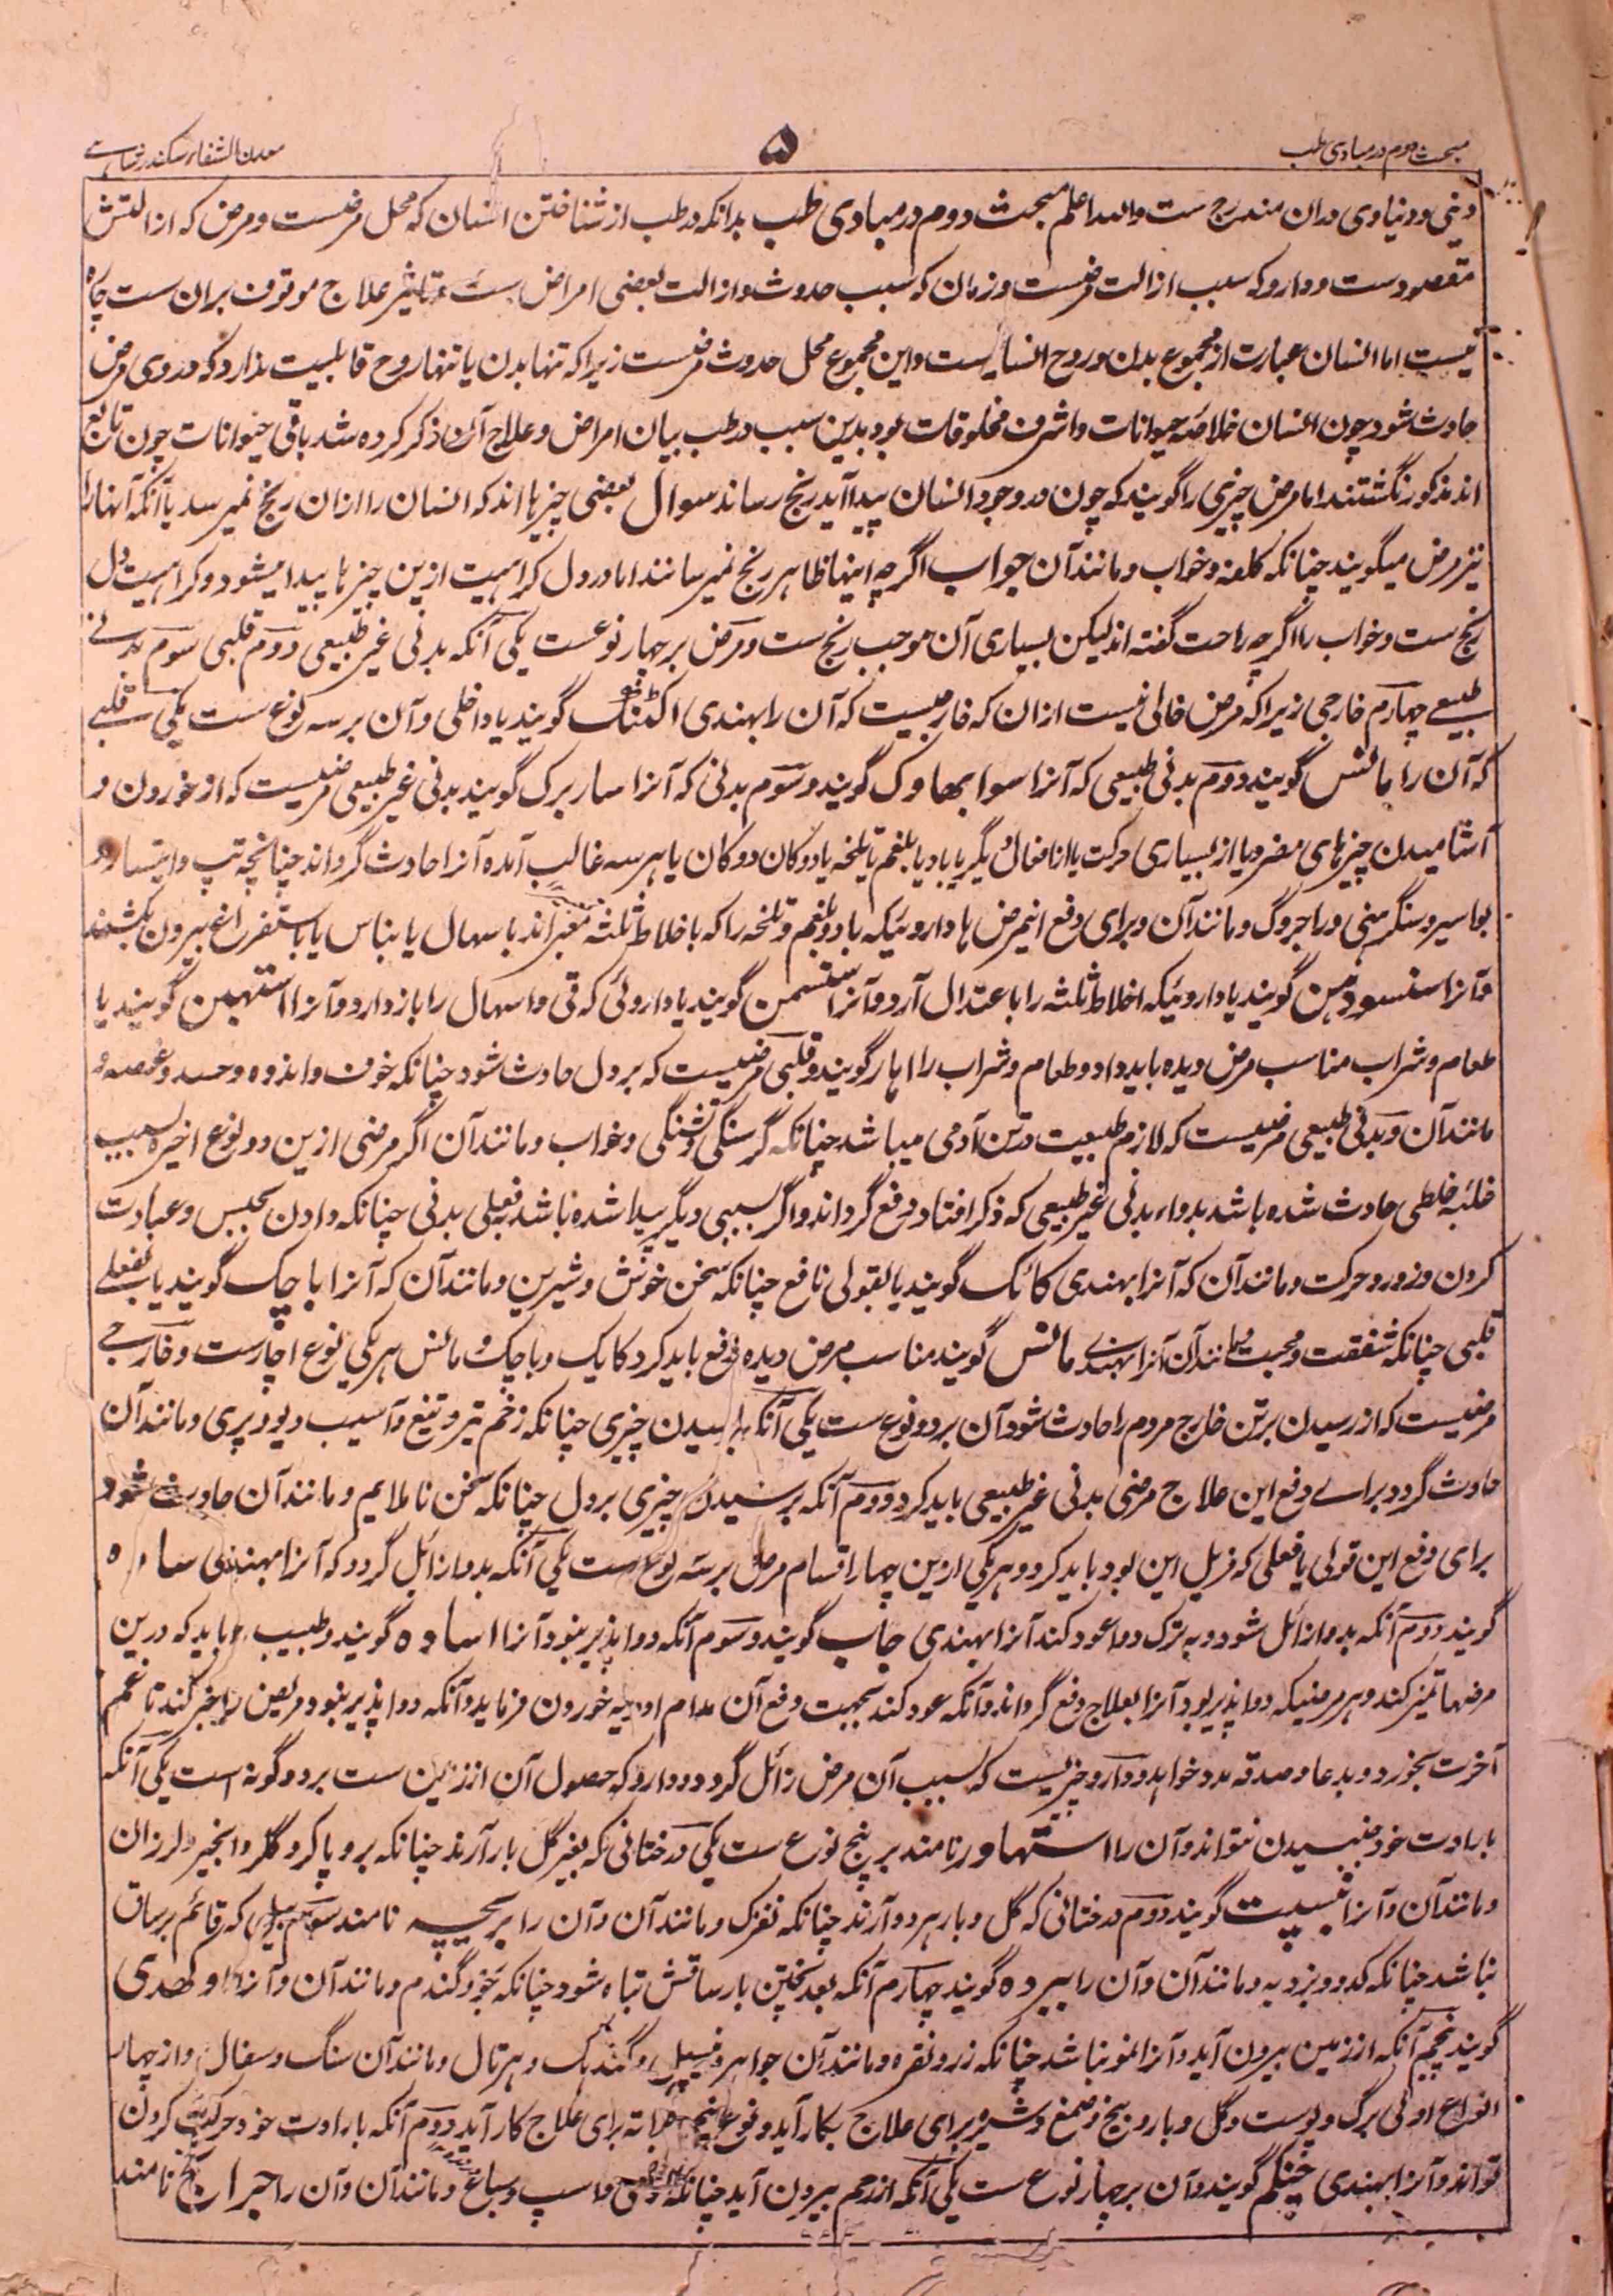 مبحث دوم در مبادی طب
۵
معدن الشفاء سکندر شاہی
دینی و دنیاوی دران مندرج ست واللہ اعلم مبحث دوم در مبادی طب بدانکہ در طب از شناختن انسان کہ محل مرضست و مرض کہ ازالتش
مقصودست و دارو کہ سبب ازالت مرضست و زمان کہ سبب حدوث و ازالت بعضی امراض ست و تاثیر علاج موقوف بران ست چارہ
نیست اما انسان عبارت از مجموع بدن و روح انسانیست و این مجموع محل حدوث مرضست زیراکہ تنہا بدن یا تنہا روح قابلیت ندارد کہ در وی مرض
حادث شود چون انسان خلاصۂ حیوانات و اشرف مخلوقات بود بدین سبب در طب بیان امراض و علاج آن ذکر کردہ شد باقی حیوانات چون تابع
اند مذکور نگشتند اما مرض چیزی را گویند کہ چون در وجود انسان پیدا آید رنج رساند سوال بعضی چیزہا اند کہ انسان را ازان رنج نمیرسد باآنکہ آنہارا
نیز مرض میگویند چنانکہ کلفہ و خواب و مانند آن جواب اگرچہ اینہا ظاہر رنج نمیرسانند اما در دل کراہیت ازین چیزہا پیدا میشود و کراہیت دل
رنج ست و خواب را اگرچہ راحت گفتہ اند لیکن بسیاری آن موجب رنج ست و مرض بر چہار نوعست یکی آنکہ بدنی غیر طبیعی دوم قلبی سوم بدنی
طبیعے چہارم خارجی زیراکہ مرض خالی نیست ازان کہ خارجیست کہ آن را بہندی اکنتک گویند یا داخلی و آن بر سہ نوع ست یکی قلبے
کہ آن را مانس گویند دوم بدنی طبیعی کہ آنرا سوابھاوک گویند و سوم بدنی کہ آنرا ساریرک گویند بدنی غیر طبیعی مرضیست کہ از خوردن و
آشامیدن چیزہای مضر و یا از بسیاری حرکت یا از افعال دیگر یا باد یا بلغم یا تلخہ یا دوگان دوگان یا ہر سہ غالب آمدہ آنرا حادث گرداند چنانچہ تپ و اتیسار و
بواسیر و سنگرہنی و راجروگ و مانند آن و برای دفع اینمرض ہا داروئیکہ باد و بلغم و تلخہ را کہ باخلاط ثلثہ معبر اند باسہال یا بناس یا باستفراغ بیرون کشند
و آنرا سنسودہن گویند یا داروئیکہ اخلاط ثلثہ را باعتدال آرد و آنرا سنسمن گویند یا داروئی کہ قی و اسہال را باز دارد و آنرا استنبہن گویند یا
طعام و شراب مناسب مرض دیدہ باید داد و طعام و شراب را اہار گویند و قلبی مرضیست کہ بر دل حادث شود چنانکہ خوف و اندوہ و حسد و غصہ و
مانند آن و بدنی طبیعی مرضیست کہ لازم طبیعت در تن آدمی میباشد چنانکہ گرسنگی و تشنگی و خواب و مانند آن اگر مرضی ازین دو نوع اخیرہ بسبب
غلبۂ خلطی حادث شدہ باشد بدواء بدنی غیر طبیعی کہ ذکر افتاد دفع گرداند و اگر بسببی دیگر پیدا شدہ باشد بفعلی بدنی چنانکہ دادن بحبس و عبادت
کردن و زور و حرکت و مانند آن کہ آنرا بہندی کائک گویند یا بقولی نافع چنانکہ سخن خوش و شیرین و مانند آن کہ آنرا باچک گویند یا بفعلے
قلبی چنانکہ شفقت و محبت و مانند آن آنرا بہندے مانس گویند مناسب مرض دیدہ دفع باید کرد کایک و باچک و مانس ہر یکی نوع اچارست و خارجے
مرضیست کہ از رسیدن برتن خارج مردم را حادث شود آن بر دو نوع ست یکی آنکہ برسیدن چیزی چنانکہ زخم تیر و تیغ و آسیب دیو و پری و مانند آن
حادث گردد براے دفع این علاج مرضی بدنی غیر طبیعی باید کرد دوم آنکہ برسیدن چیزی بر دل چنانکہ سخن ناملایم و مانند آن حادث شود
برای دفع این قولی یا فعلی کہ مزیل این بود باید کرد و ہر یکی ازین چہار اقسام مرض بر سہ نوع ست یکی آنکہ بدوا زائل گردد کہ آنرا بہندی سادہ
گویند دوم آنکہ بدوا زائل شود و بہ ترک دوا عود کند آنرا بہندی جاب گویند و سوم آنکہ دوا پذیر نبود آنرا اسادہ گویند و طبیب را باید کہ درین
مرضہا تمیز کند و ہر مرضیکہ دوا پذیر بود آنرا بعلاج دفع گرداند و آنکہ عود کند بجہت دفع آن مدام ادویہ خوردن فرماید و آنکہ دوا پذیر نبود مریض را خبر کند تا غم
آخرت بخورد و بدعا و صدقہ مدد خواہد و دارو چیزیست کہ بسبب آن مرض زائل گردد و دارو کہ حصول آن از زمین ست بر دو گونہ است یکی آنکہ
بارادت خود جنبیدن نتواند و آن را استہاور نامند بر پنج نوع ست یکی درختانی کہ بغیر گل بار آرند چنانکہ بر و پاکر و گلر و انجیر و لرزان
و مانند آن و آنرا نبسپت گویند دوم درختانی کہ گل و بار ہر دو آرند چنانکہ نغزک و مانند آن و آن را برچھہ نامند سوم بیلی کہ قائم بر ساق
نباشد چنانکہ کدو و بزدیہ و مانند آن و آن را بیردہ گویند چہارم آنکہ بعد پختن بار ساقش تباہ شود چنانکہ نخود و گندم و مانند آن و آنرا اوکھدی
گویند پنجم آنکہ از زمین بیرون آید و آنرا نمو نباشد چنانکہ زر و نقرہ و مانند آن جواہر و مینسل و گندہک و ہرتال و مانند آن سنگ و سفال و از چہار
انواع اولی برگ و پوست و گل و بار و بیخ و صمغ و شیر برای علاج بکار آید و نوع پنجم بذاتہ برای علاج کار آید دوم آنکہ بارادت خود حرکت کردن
تواند و آنرا بہندی جنگم گویند و آن بر چہار نوع ست یکی آنکہ از رحم بیرون آید چنانکہ آدمی و اسپ و سباع و مانند آن و آن را جیرایج نامند